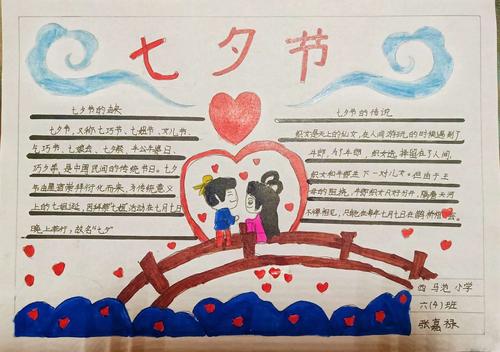 七夕节
七夕节的由来
七夕节，又称七巧节、七姐节、女儿节、
乞巧节、七娘会、七夕祭、牛公牛婆日、
巧夕等，是中国民间的传统节日。七夕
由星宿崇拜衍化而来，为传统意义
上的七姐诞，因拜祭七姐活动在七月七日
晚上举行，故名"七夕"
七夕节的传说
织女是天上的仙女，在人间游玩的时候遇到了
牛郎，为了牛郎，织女选择留在了人间，
织女和牛郎生下一对儿女。但由于王
母的阻挠，牛郎织女只好分开，隔着天河
不得相见，只能在每年七月七日在鹊桥相会。
西马池小学
六(4)班
张嘉禄